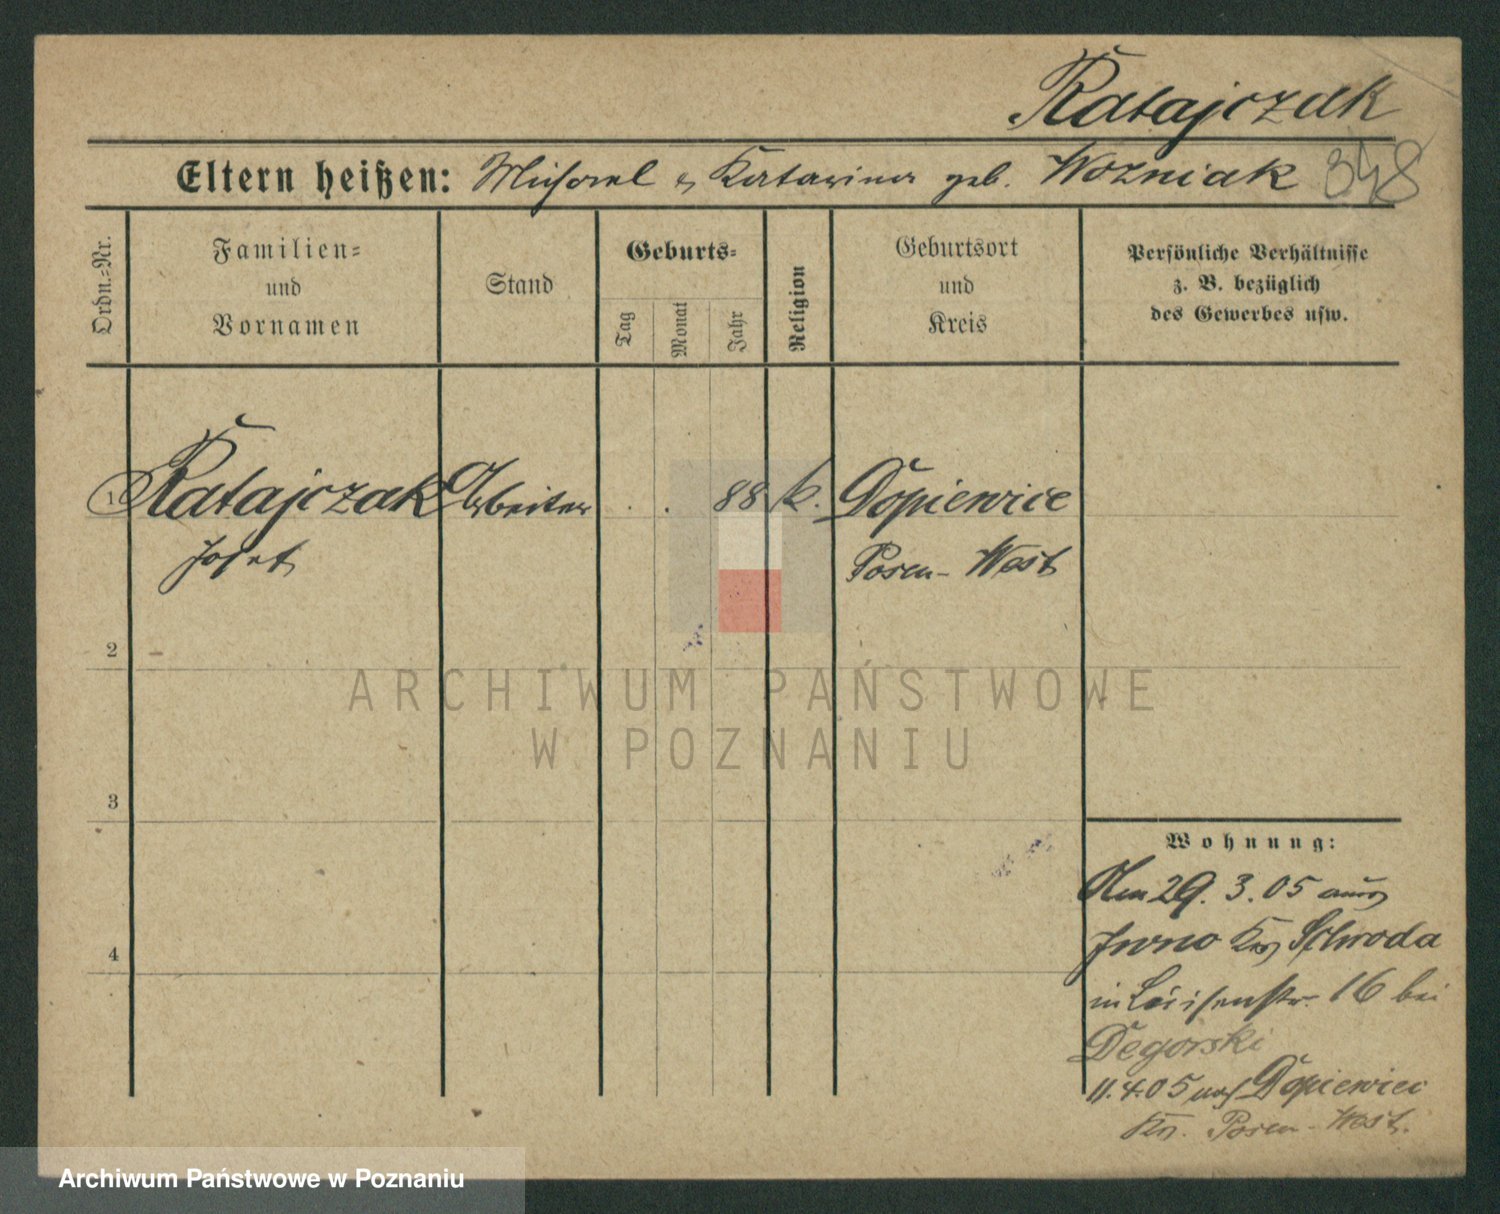 Ratajczak
Eltern heißen: Michael & Katarina geb. Wozniak 348
Ordn.=Nr.
Familien=
und
Vornamen
Stand
Geburts=
Tag
Monat
Jahr
Religion
Geburtsort
und
Kreis
Persönliche Verhältnisse
z. B. bezüglich
des Gewerbes usw.
1 Ratajczak Arbeiter . . 88 k. Dopiewice
Josef Posen-West
2
ARCHIWUM PAŃSTWOWE
W POZNANIU
3
Wohnung:
Am 29.3.05 aus
Iwno Krs Schroda
in Luisenstr. 16 bei
4
Degorski
11.4.05 nach Dopiewiec
Kr. Posen-West.
Archiwum Państwowe w Poznaniu